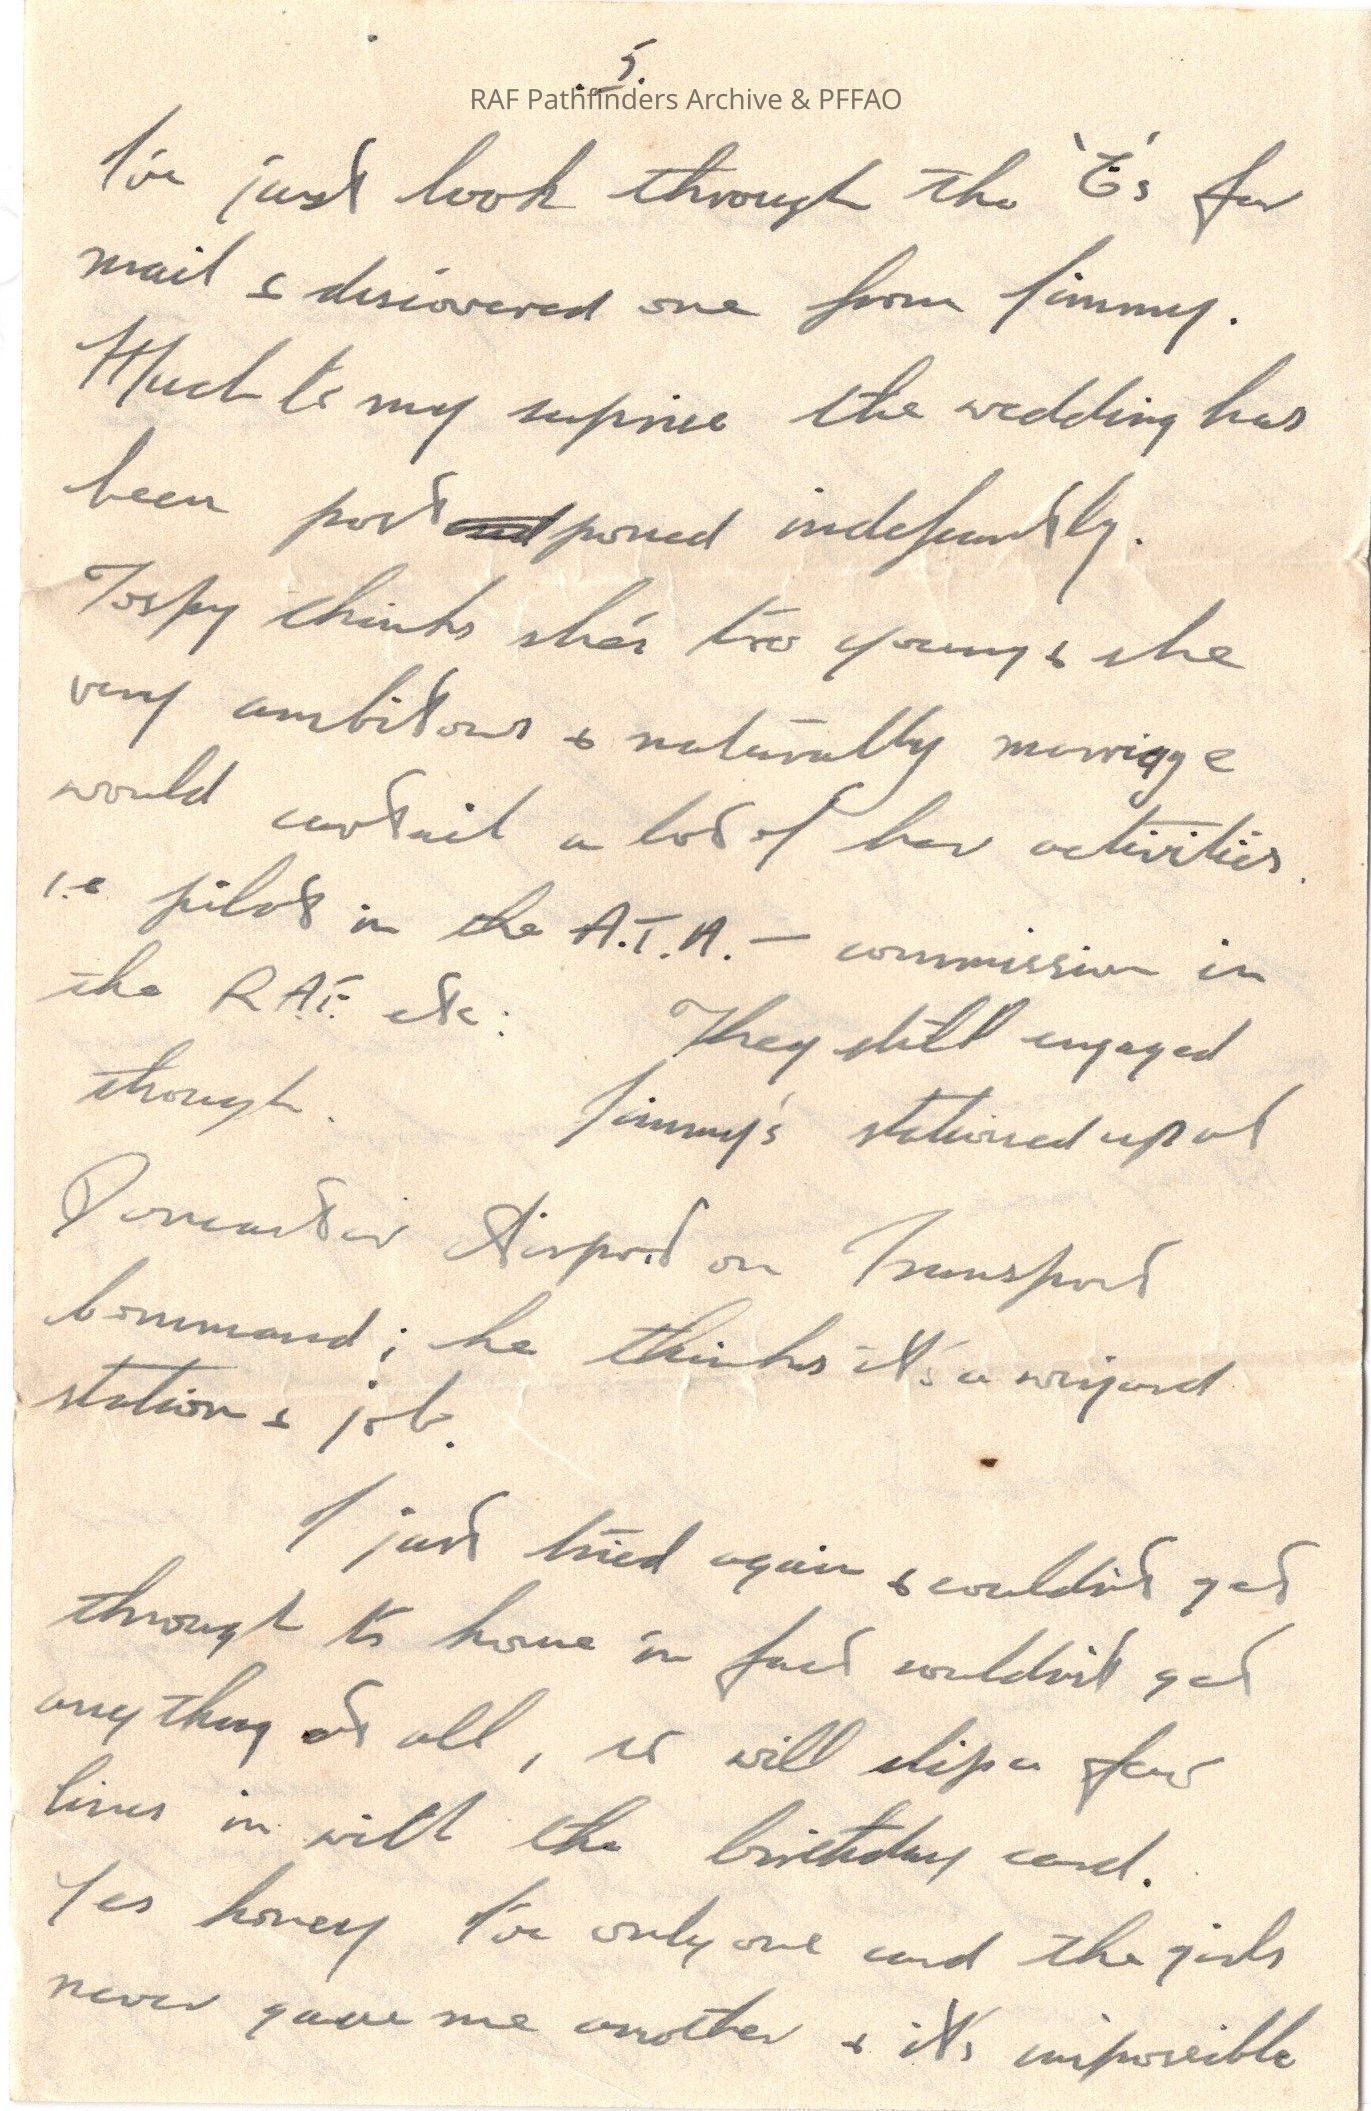 5.
RAF Pathfinders Archive & PFFAO
I've just look through the 'E's for
mail & discovered one from Jimmy.
Much to my suprise the wedding has
been post poned indefinitly.
Topsy thinks she's too young & she
very ambitous & naturally marriage
would curtail a lot of her activities.
i.e pilot in the A.T.A. — commission in
the R.A.F. etc: They still engaged
though. Jimmy's stationed up at
Doncaster Airport on Transport
Command; he thinks it's a wizard
station & job.
I just tried again & couldn't get
through to home in fact couldn't get
anything at all, so will slip a few
lines in with the birthday card.
Yes honey I've only one card the girls
never gave me another & it's impossible